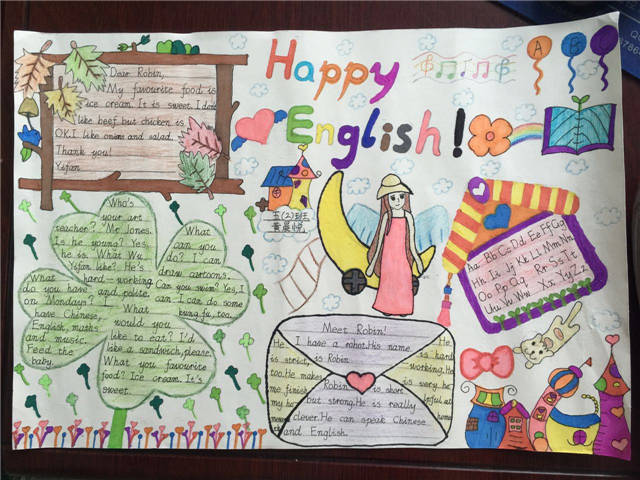 Dear Robin,
My favourite food is
ice cream. It is sweet. I don't
like beef but chicken is
OK.I like onions and salad.
Thank you!
Yifan
Happy
English!
A B
五(2)班
Who's
your art
teacher? Mr Jones.
Is he young? Yes,
he is. What Wu
Yifan like? He's
hard-working
and polite.
What
can you
do? I can
draw cartoons.
Can you swim? Yes, I
can. I can do some
kung fu, too.
What
do you have
on Mondays? I
have Chinese,
English, maths
and music.
Feed the
baby.
What
would you
like to eat? I'd
like a sandwich, please.
What you favourite
food? Ice cream. It's
sweet.
Aa Bb Cc Dd Ee Ff Gg
Hh Ii Jj Kk Ll Mm Nn
Oo Pp Qq Rr Ss Tt
Uu Vv Ww Xx Yy Zz
Meet Robin!
I have a robot.His name
is Robin
He
is strict,
too.He makes
me finish
my
Robin is short
but strong.He is really
clever.He can speak Chinese
and English.
He
is hard
working.He
is very
at
home